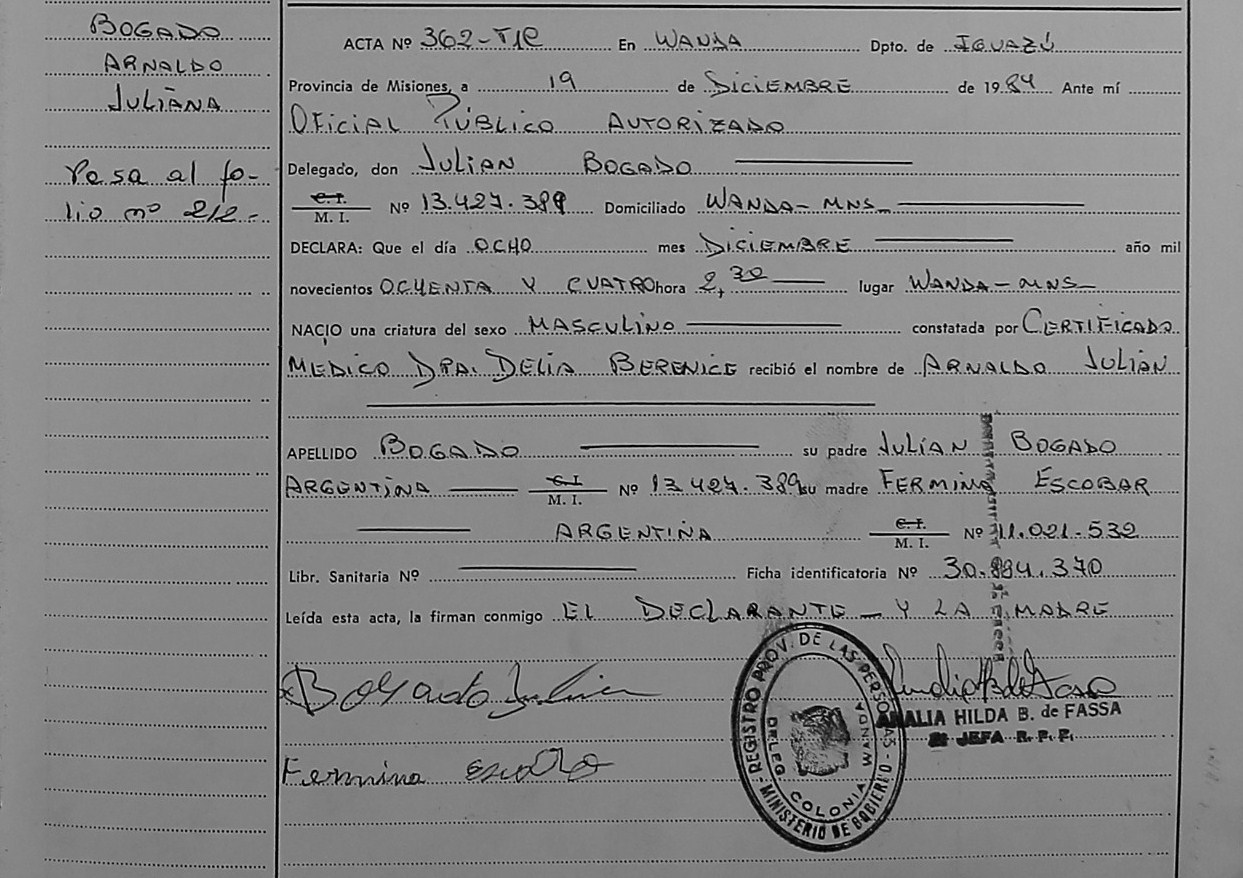 BOGADO
ARNALDO
JULIANA
Pasa al fo-
lio nº 212-
ACTA Nº 362-T1C En WANDA Dpto. de IGUAZÚ
Provincia de Misiones, a 19 de DICIEMBRE de 1984 Ante mí
OFICIAL PÚBLICO AUTORIZADO
Delegado, don JULIAN BOGADO
C.I.
M. I. Nº 13.427.389 Domiciliado WANDA-MNS
DECLARA: Que el día OCHO mes DICIEMBRE año mil
novecientos OCHENTA Y CUATRO hora 2,30 lugar WANDA-MNS
NACIO una criatura del sexo MASCULINO constatada por CERTIFICADO
MEDICO DRA. DELIA BERENICE recibió el nombre de ARNALDO JULIÁN
APELLIDO BOGADO su padre JULIAN BOGADO
ARGENTINA C.I. M. I. Nº 13.427.389 su madre FERMINA ESCOBAR
ARGENTINA C.I. M. I. Nº 11.021.532
Libr. Sanitaria Nº Ficha identificatoria Nº 30.994.370
Leída esta acta, la firman conmigo EL DECLARANTE - Y LA MADRE
Bogado Julian
Fermina Escobar
REGISTRO PROV. DE LAS PERSONAS - MINISTERIO DE GOBIERNO -
DELEG COLONIA WANDA
AMALIA HILDA B. de FASSA
JEFA R. P. P.